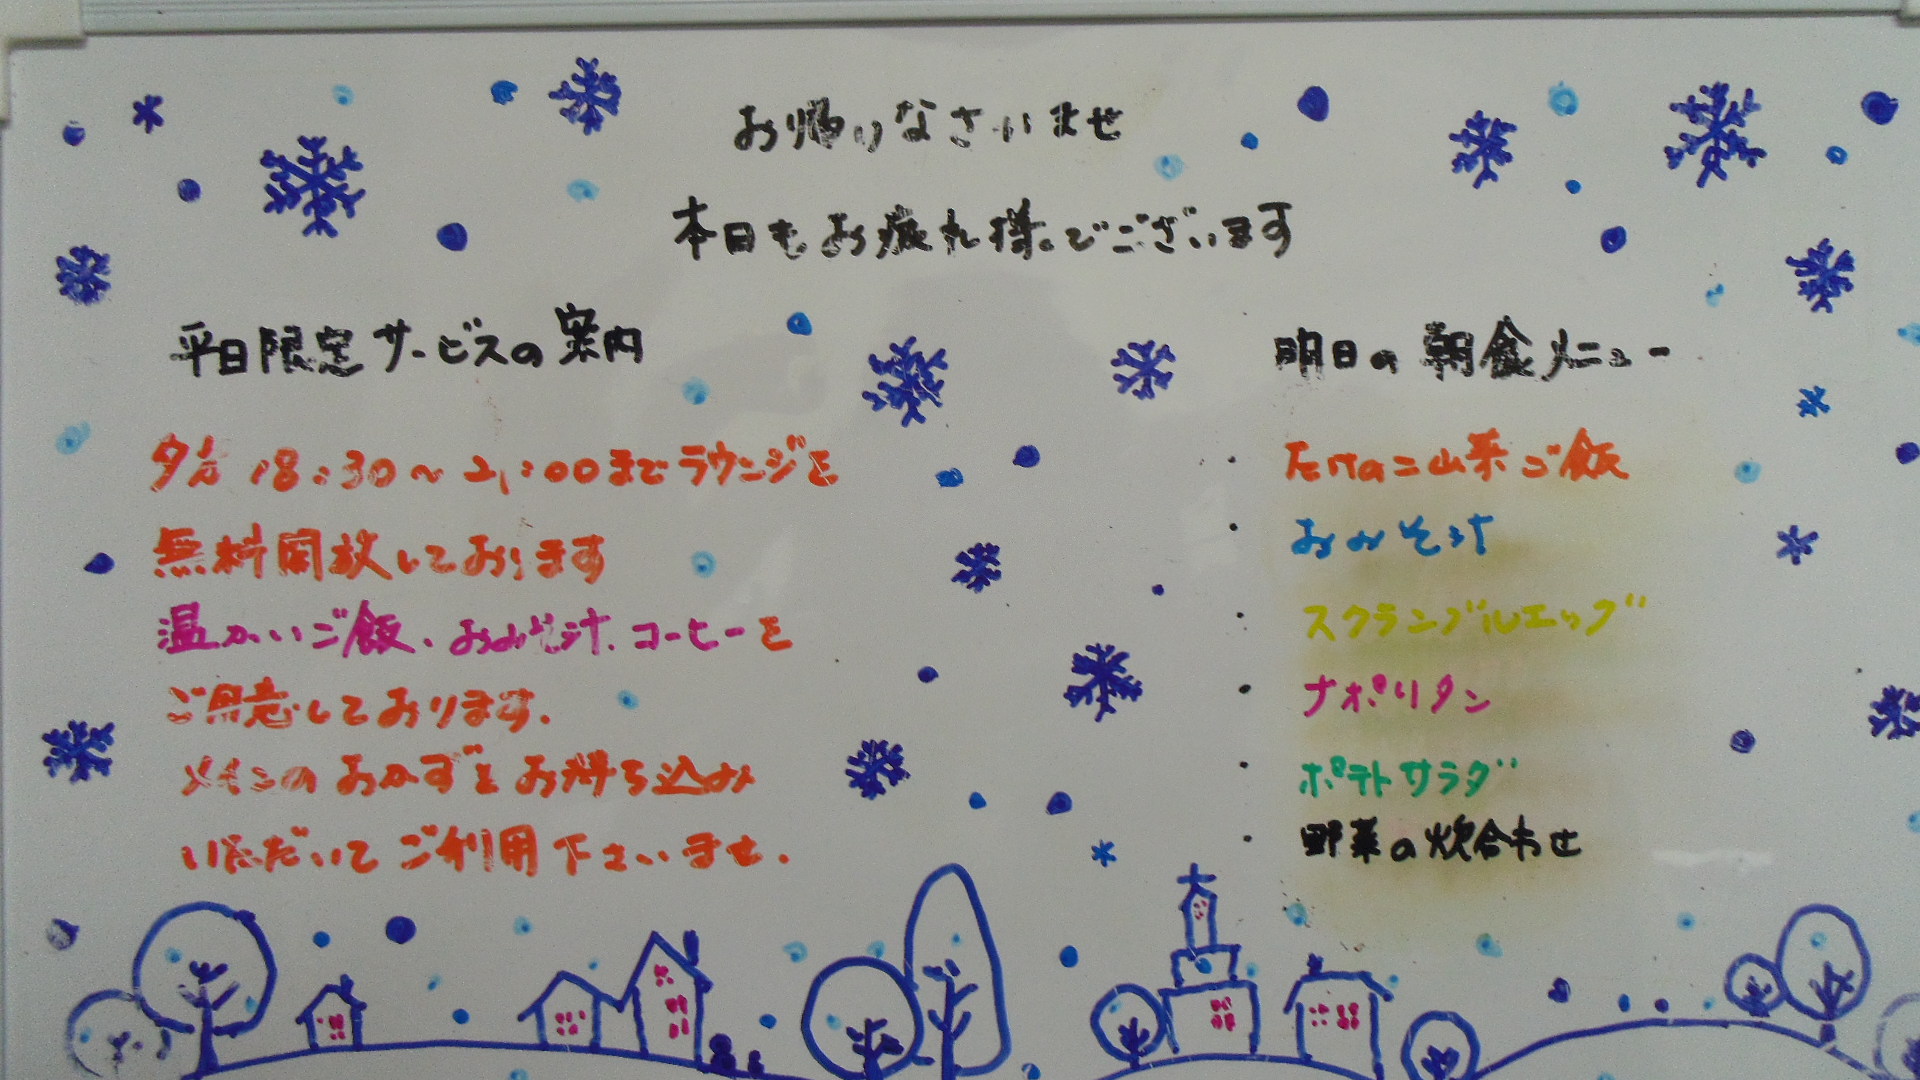 お帰りなさいませ
本日もお疲れ様でございます
平日限定サービスの案内
夕方 18:30～21:00までラウンジを
無料開放しております
温かいご飯、おみそ汁、コーヒーを
ご用意しております.
メインのおかずをお持ち込み
いただいてご利用下さいませ.
明日の朝食メニュー
・山菜ご飯
・おみそ汁
・スクランブルエッグ
・ナポリタン
・ポテトサラダ
・野菜の炊合わせ